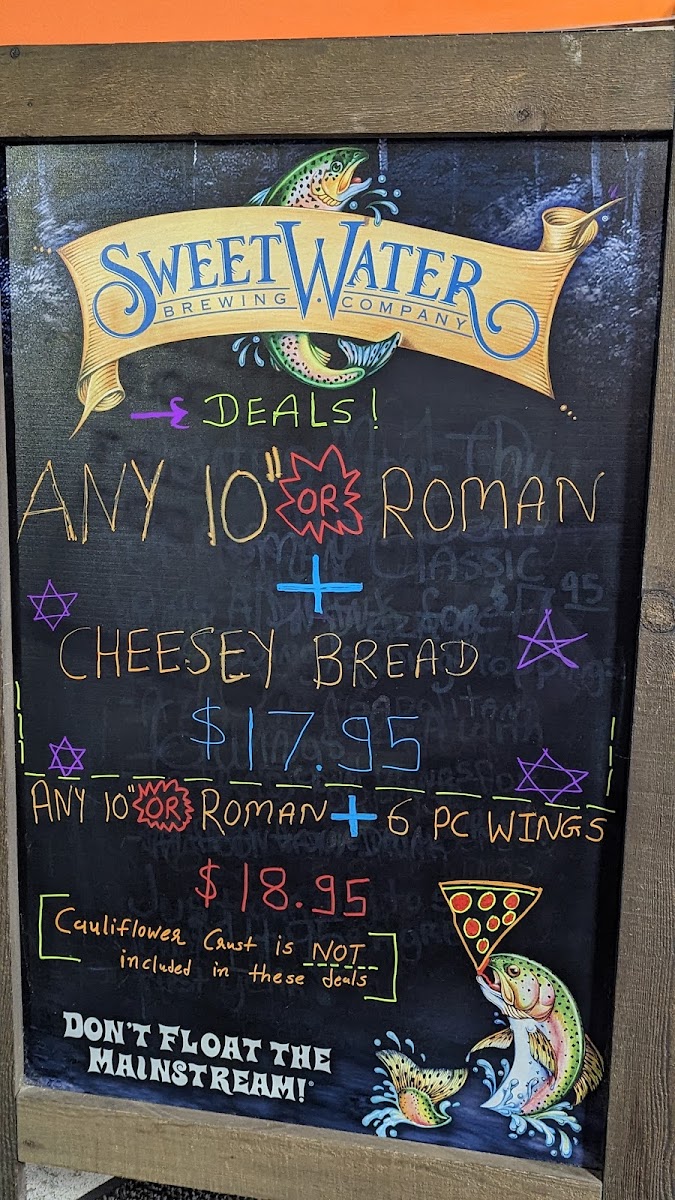 SWEETWATER
BREWING COMPANY
DEALS!
ANY 10" OR ROMAN
+
CHEESEY BREAD
$17.95
ANY 10" OR ROMAN + 6 PC WINGS
$18.95
[Cauliflower Crust is NOT
included in these deals]
DON'T FLOAT THE
MAINSTREAM!